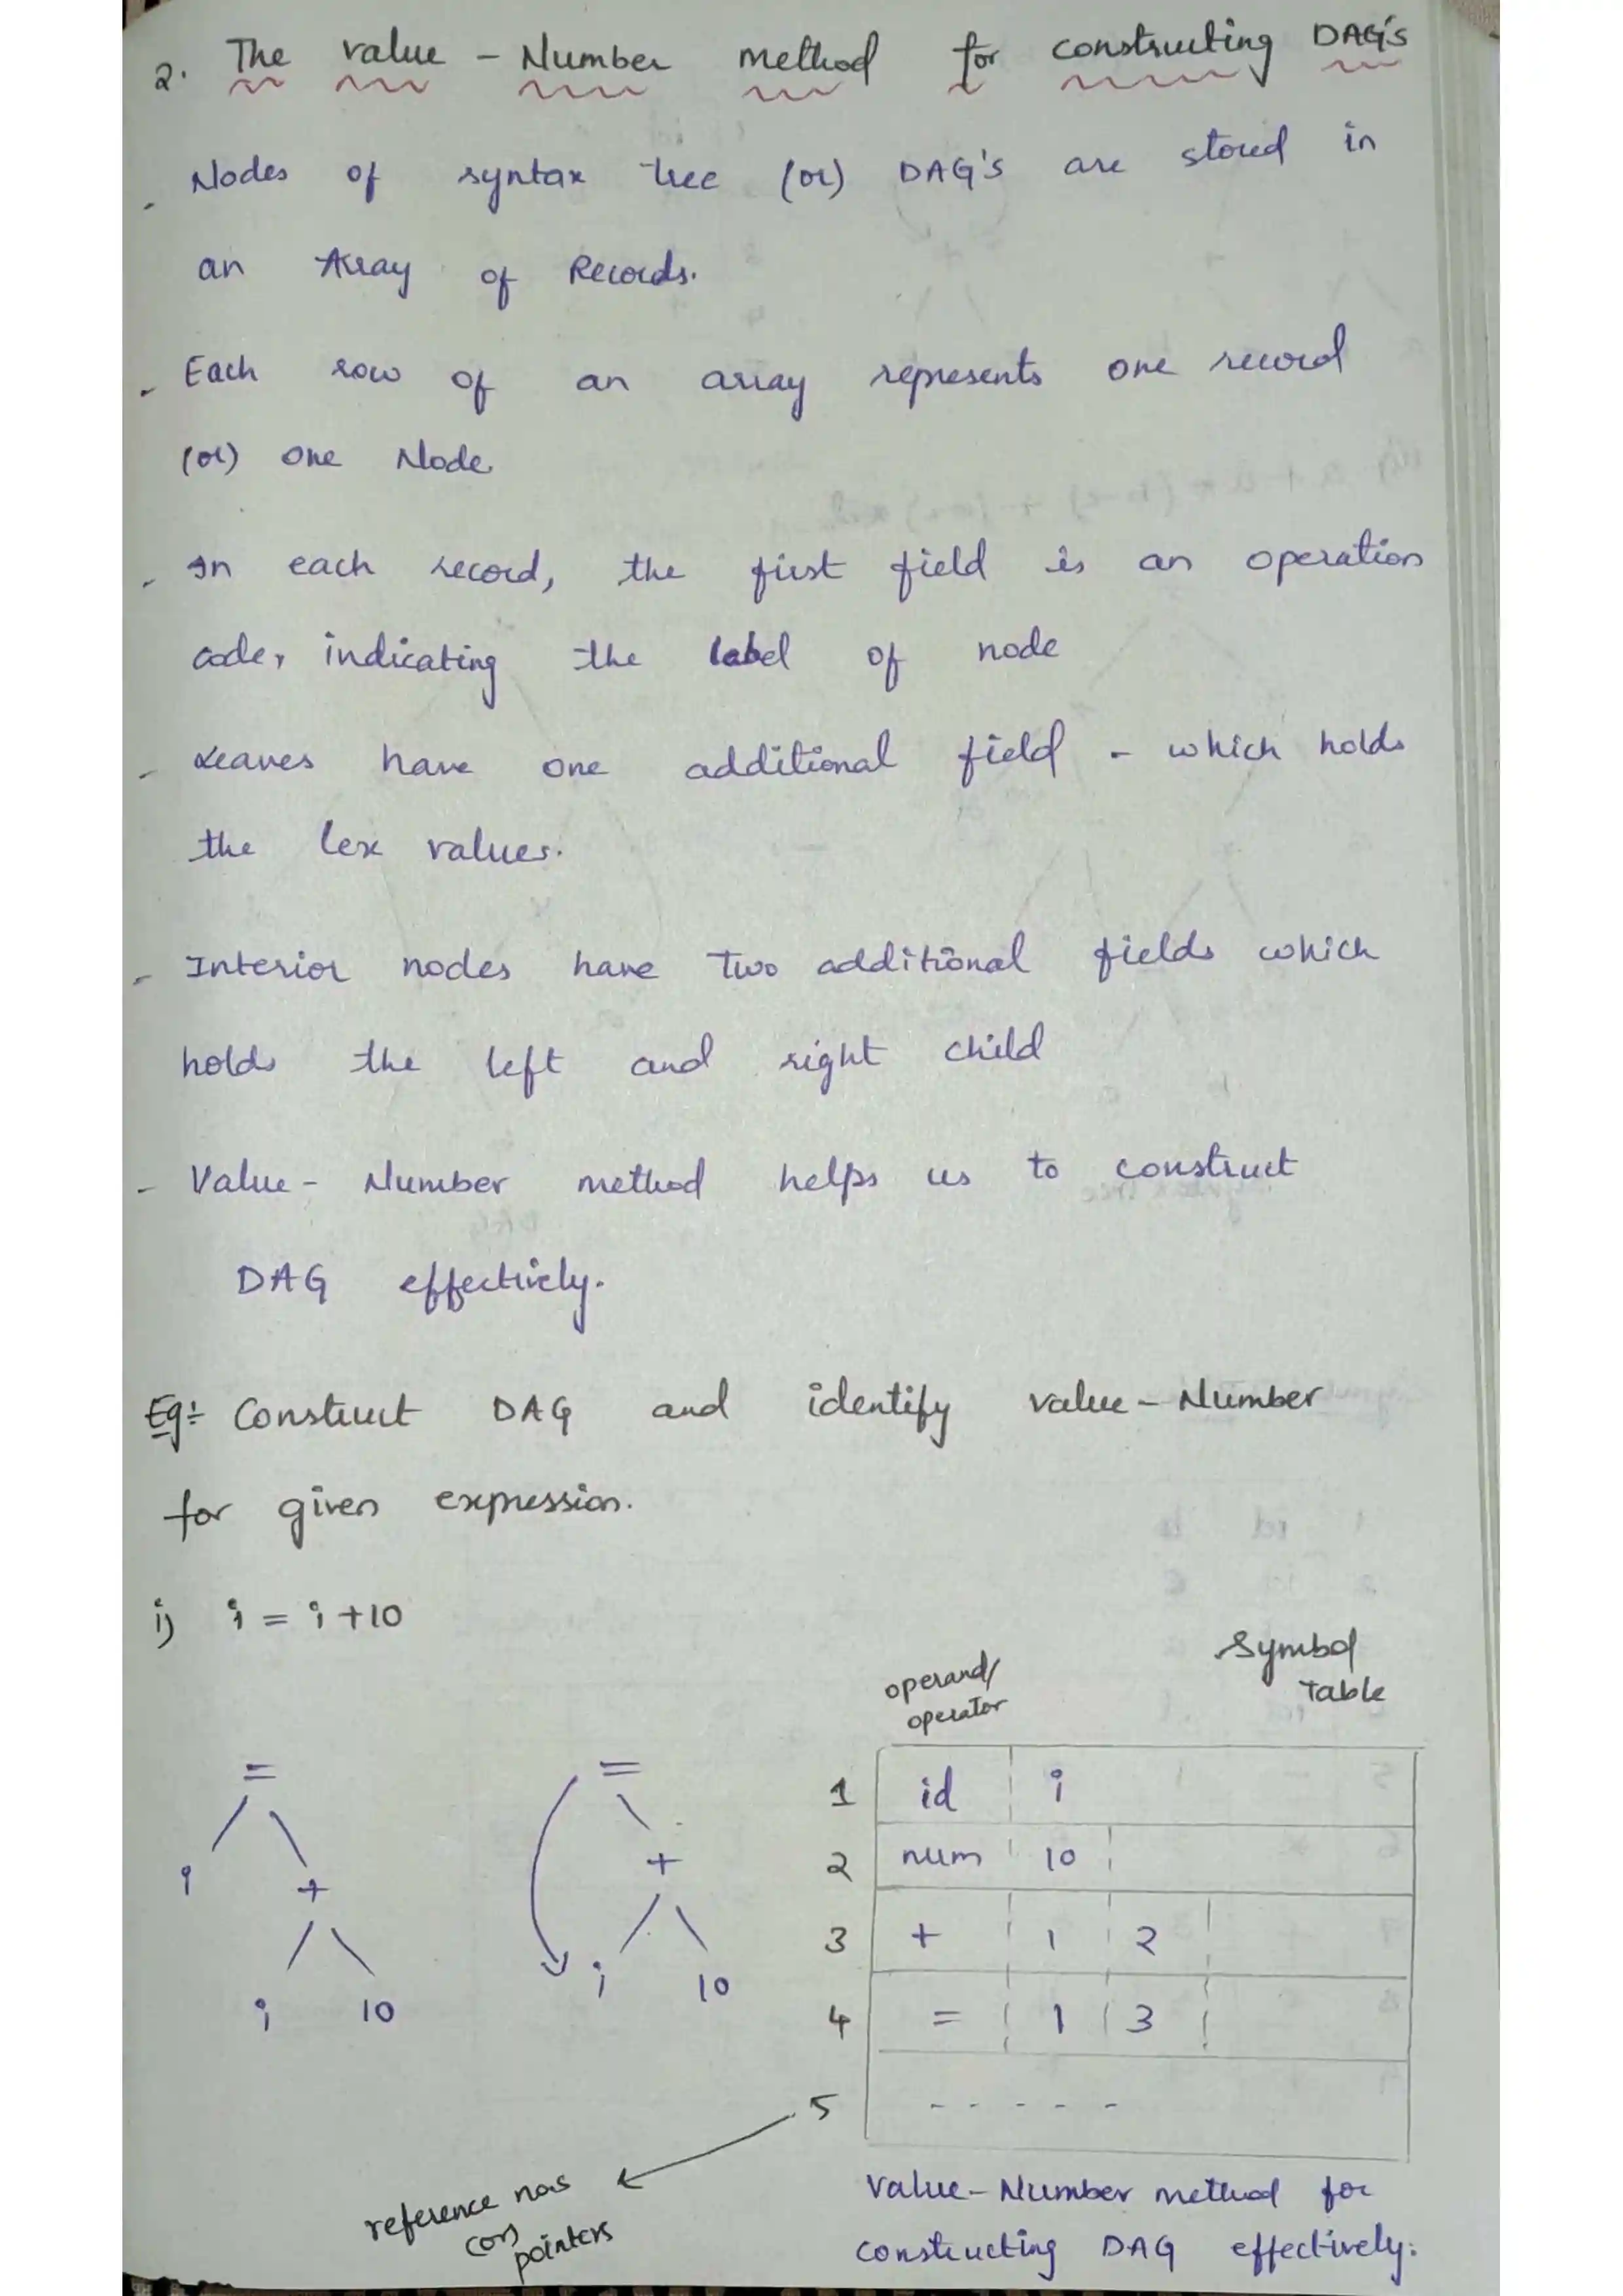 2. The value - Number method for constructing DAG's
- Nodes of syntax tree (or) DAG's are stored in
an Array of Records.
- Each row of an array represents one record
(or) one Node
- In each record, the first field is an operation
code, indicating the label of node
- Leaves have one additional field - which holds
the lex values.
- Interior nodes have Two additional fields which
holds the left and right child
- Value - Number method helps us to construct
DAG effectively.
Eg:- Construct DAG and identify value - Number
for given expression.
i) i = i + 10
operand/
operator
Symbol
Table
=
i +
i 10
=
+
i 10
1 id i
2 num 10
3 + 1 2
4 = 1 3
5 - - - - -
reference nos
(or)
pointers
Value - Number method for
constructing DAG effectively.